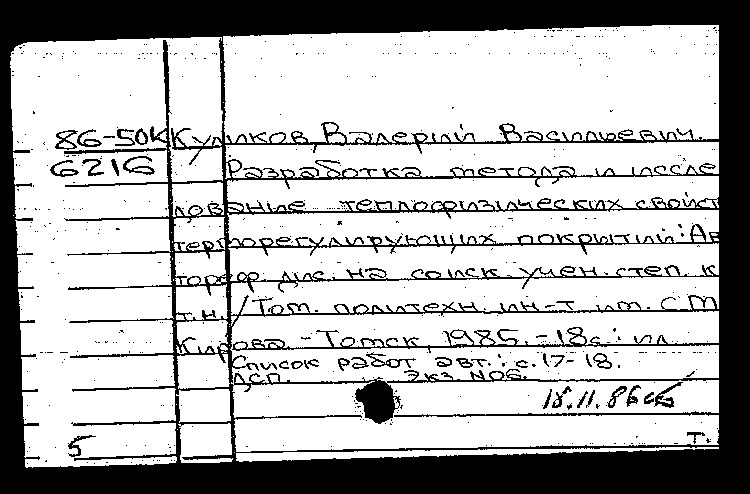 86-50К Куликов, Валерий Васильевич.
6216 Разработка метода и иссле
дование теплофизических свойст
терморегулирующих покрытий: Ав
тореф. дис. на соиск. учен. степ. к
т.н. / Том. политехн. ин-т им. С.М
Кирова. - Томск, 1985. - 18с.: ил
Список работ авт.: с. 17-18.
ДСП. Экз. №06.
18.11.86
5 Т.